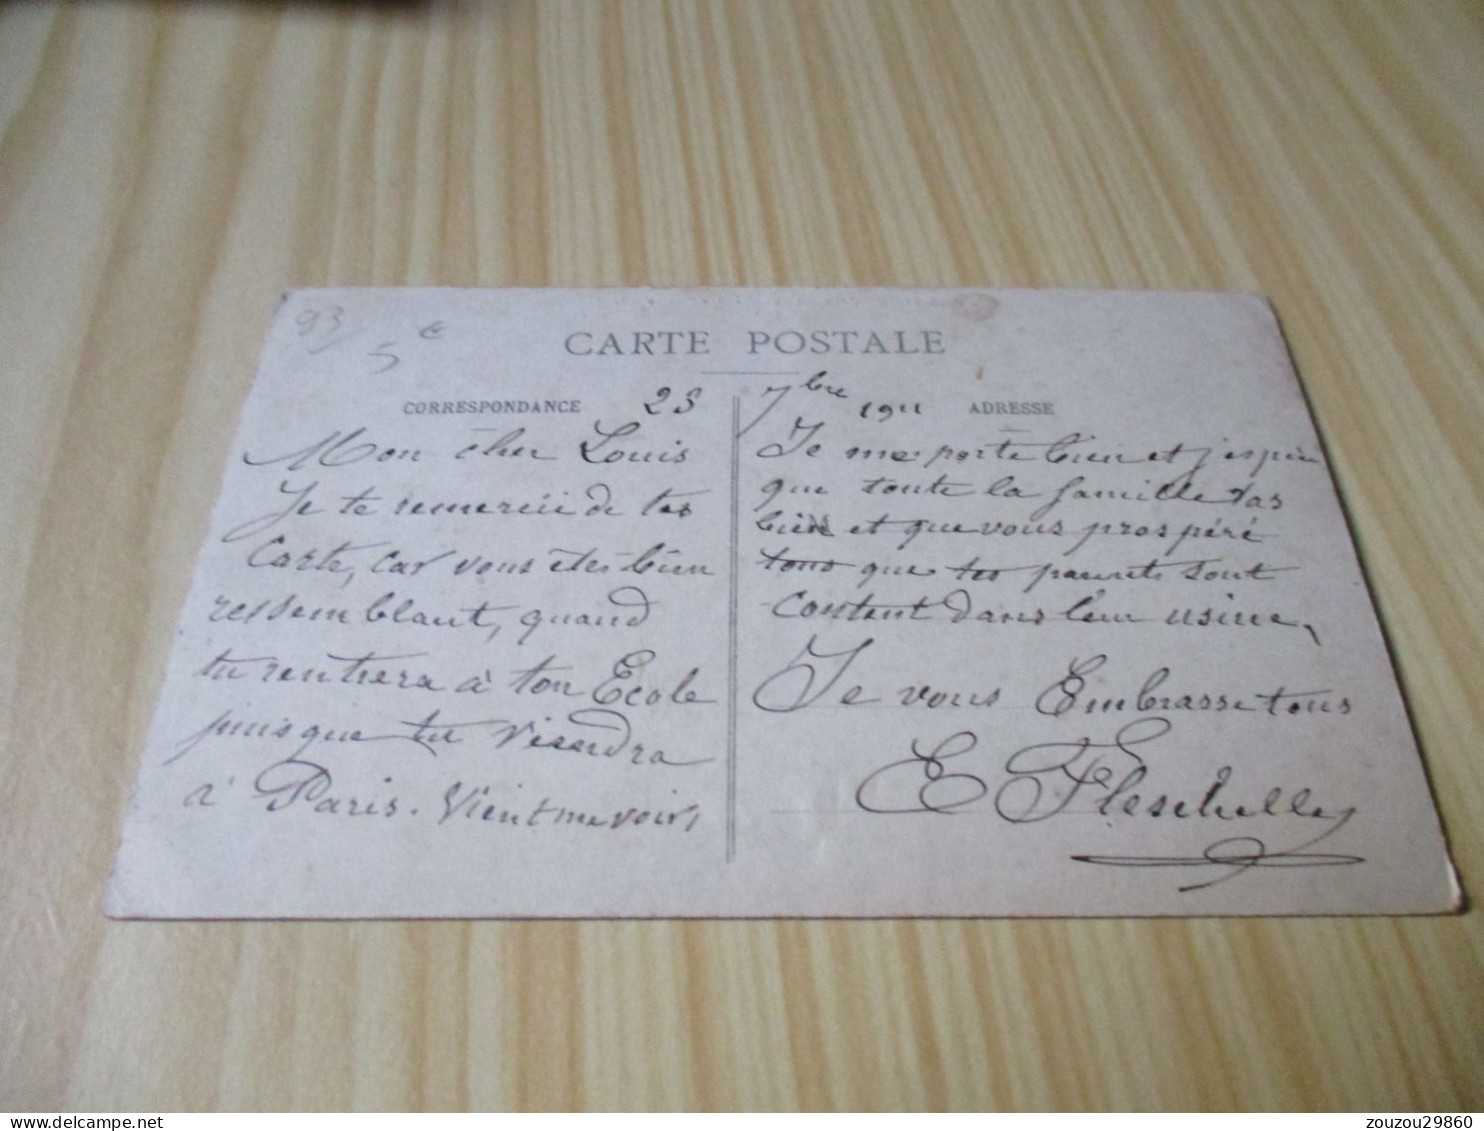 93
5 €
CARTE POSTALE
CORRESPONDANCE
ADRESSE
25 7bre 1911
Mon cher Louis
Je te remercii de tes
Carte, car vous êtes bien
ressemblant, quand
tu rentrera à ton Ecole
puisque tu Viendra
à Paris. Vient me voir,
Je me porte bien et j'espère
que toute la famille
bien et que vous prospéré
tous que tes parents sont
Content dans leur usine,
Je vous Embrasse tous
E Fleschelles
zouzou29860